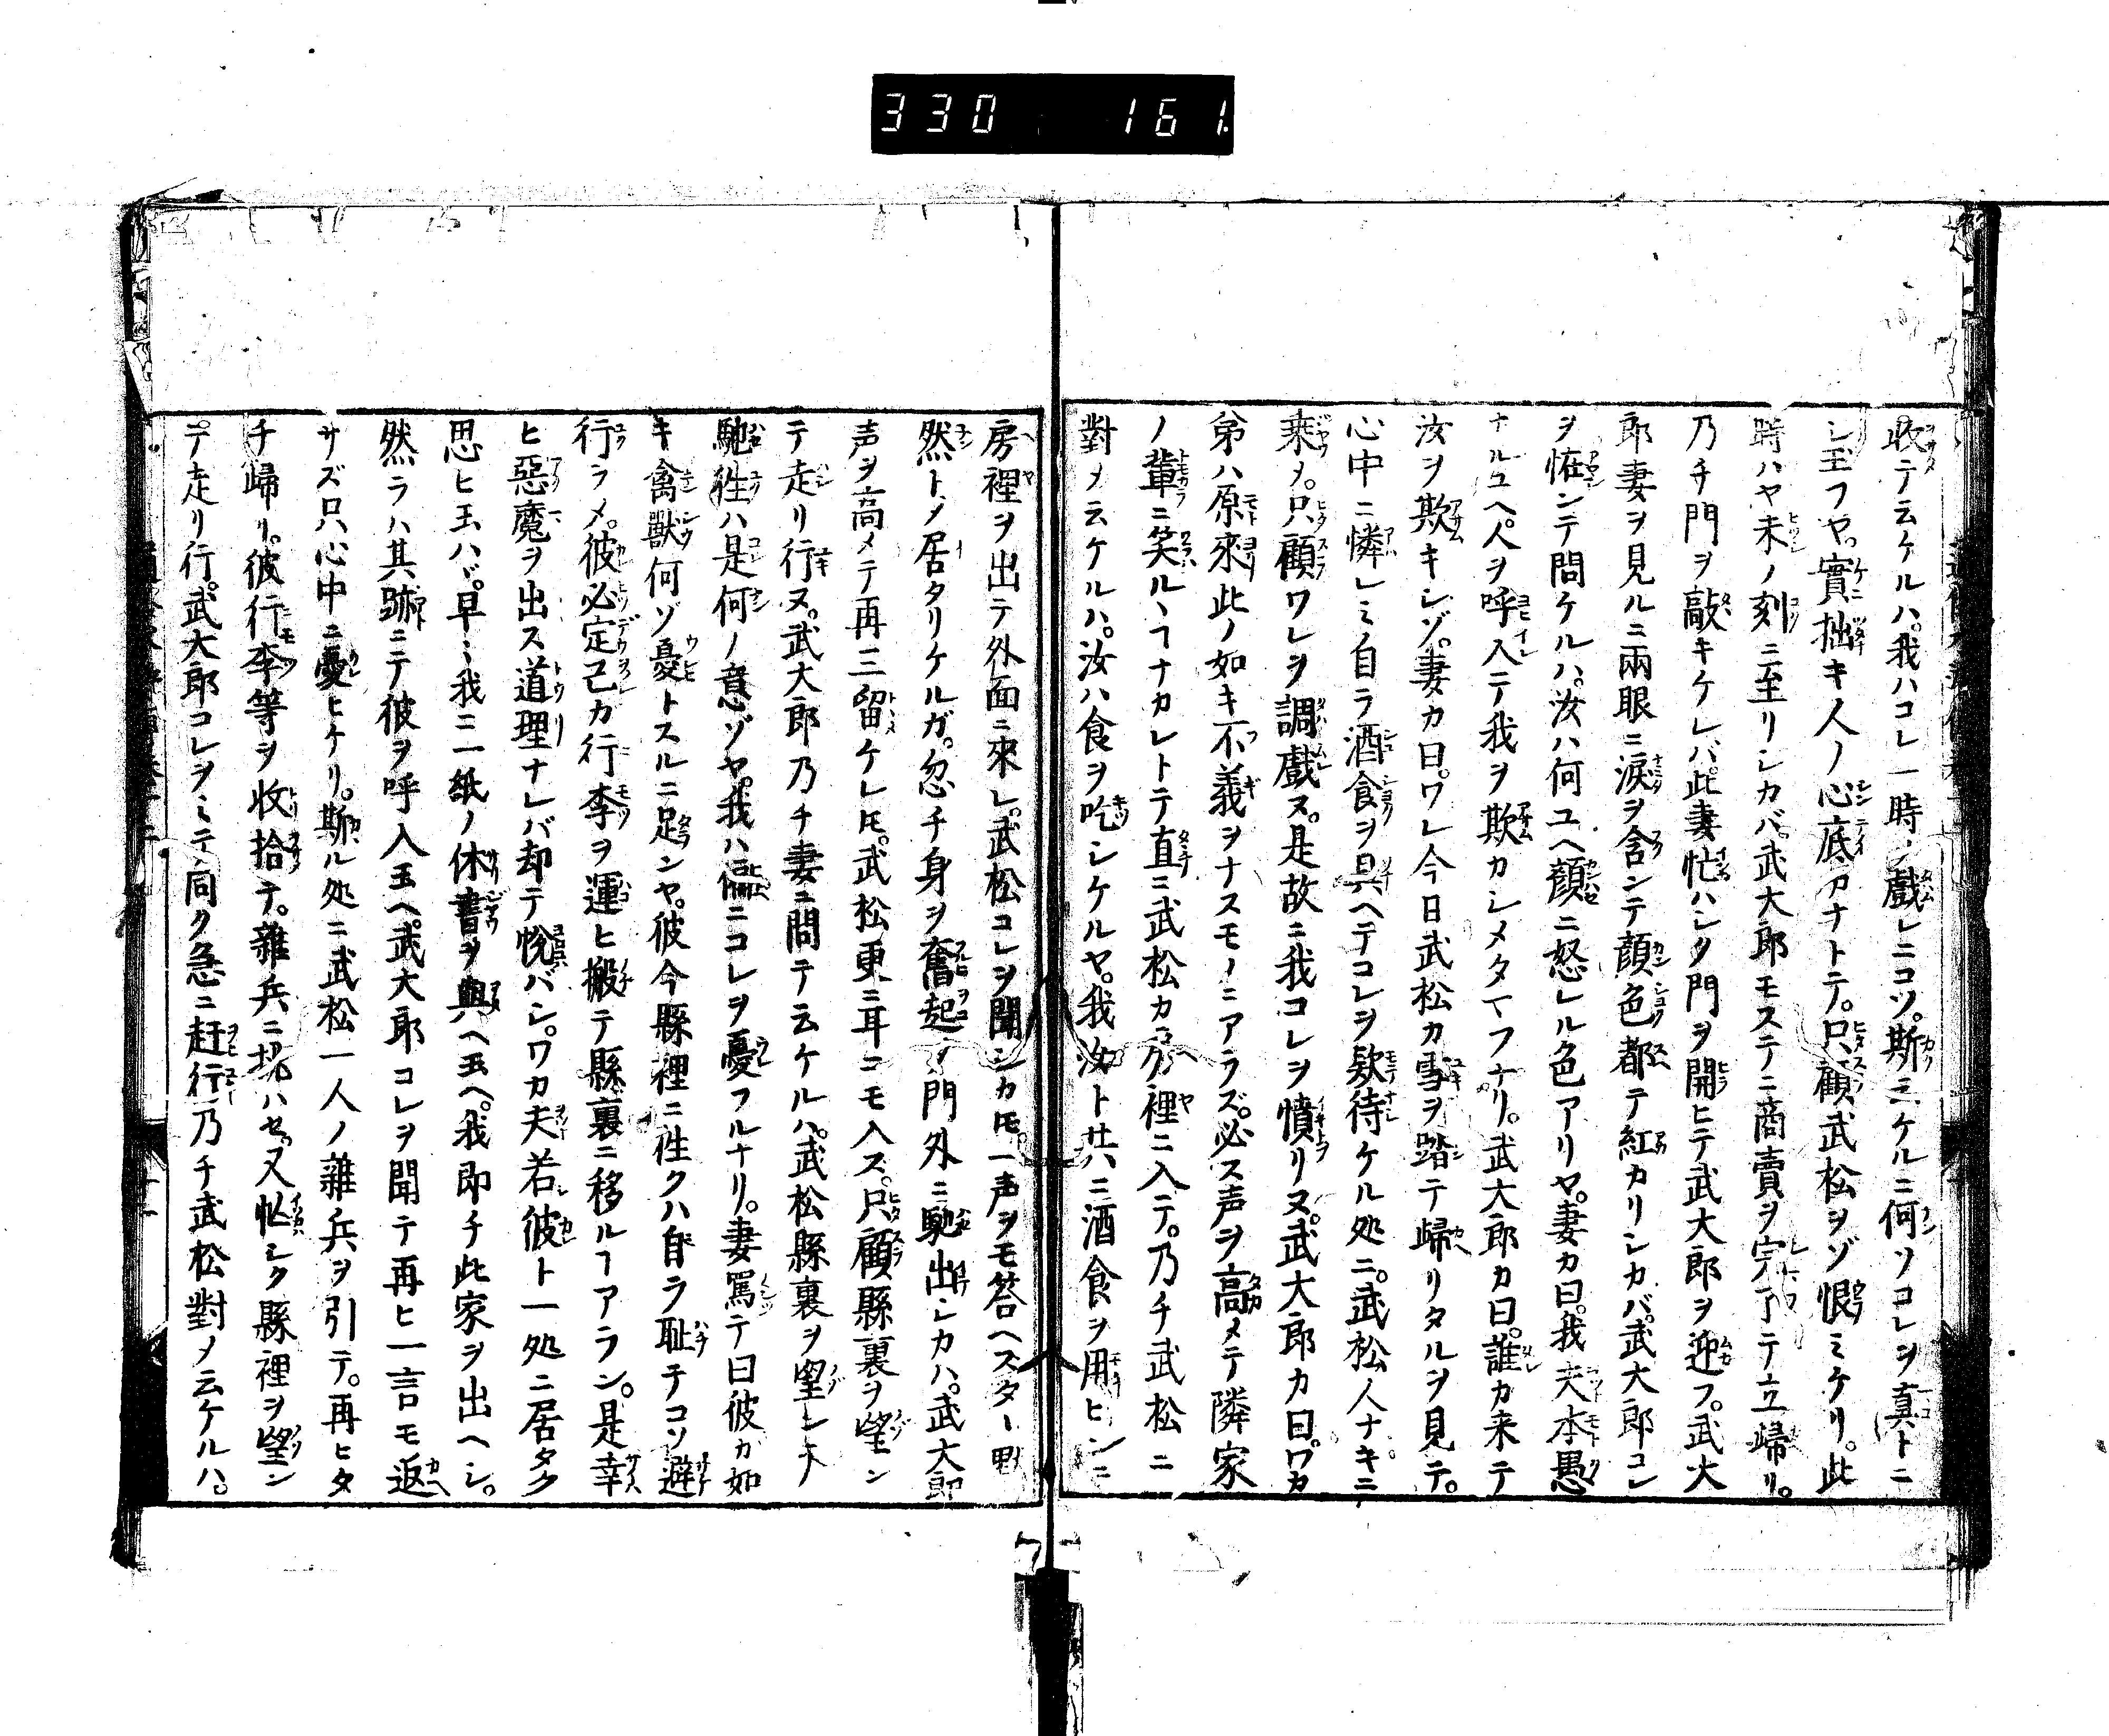 330 161
收テ云ケルハ。我ハコレ一時ノ戲レニコソ。斯云ケルニ何ソコレヲ真トニ
シ玉フヤ。實拙キ人ノ心底カナトテ。只顧武松ヲゾ恨ミケリ。此
時ハヤ未ノ刻ニ至リシカバ。武大郎モステニ商賣ヲ完了テ立歸リ。
乃チ門ヲ敲キケレバ。此妻忙ハシク門ヲ開ヒテ武大郎ヲ迎フ。武大
郎妻ヲ見ルニ兩眼ニ淚ヲ含ンテ顏色都テ紅カリシカバ。武大郎コレ
ヲ恠ンテ問ケルハ。汝ハ何ユヘ顏ニ怒レル色アリヤ。妻カ曰。我夫本愚
ナルユヘ。人ヲ呼入テ我ヲ欺カシメタマフナリ。武大郎カ曰。誰カ来テ
汝ヲ欺キシゾ。妻カ曰。ワレ今日武松カ雪ヲ踏テ歸リタルヲ見テ。
心中ニ憐レミ自ラ酒食ヲ具ヘテコレヲ欵待ケル処ニ。武松人ナキニ
乗メ。只顧ワレヲ調戲ヌ。是故ニ我コレヲ憤リヌ。武大郎カ曰。ワカ
弟ハ原來此ノ如キ不義ヲナスモノニアラズ。必ス声ヲ高メテ隣家
ノ輩ニ笑ルヽヿナカレトテ直ニ武松カ房裡ニ入テ。乃チ武松ニ
對メ云ケルハ。汝ハ食ヲ吃シケルヤ。我汝ト共ニ酒食ヲ用ヒンニ
房裡ヲ出テ外面ニ來レ。武松コレヲ聞シカ𪜈一声ヲモ答ヘスター黙
然トメ居タリケルガ。忽チ身ヲ奮起メ門外ニ馳出シカハ。武大郎
声ヲ高メテ再三留ケレ𪜈。武松更ニ耳ニモ入ス。只顧縣裏ヲ望ン
テ走リ行ヌ。武大郎乃チ妻ニ問テ云ケルハ。武松縣裏ヲ望シテ
馳徃ハ是何ノ意ゾヤ。我ハ偏ニコレヲ憂フルナリ。妻罵テ曰彼カ如
キ禽獸何ゾ憂トスルニ足ンヤ。彼今縣裡ニ徃クハ自ラ耻テコソ避
行ラメ。彼必定己カ行李ヲ運ヒ搬テ縣裏ニ移ルヿアラン。是幸
ヒ惡魔ヲ出ス道理ナレバ却テ悅バシ。ワカ夫若彼ト一処ニ居タク
思ヒ玉ハヾ。早〻我ニ一紙ノ休書ヲ與ヘ玉ヘ。我即チ此家ヲ出ヘシ。
然ラハ其跡ニテ彼ヲ呼入玉ヘ。武大郎コレヲ聞テ再ヒ一言モ返
サズ只心中ニ憂ヒケリ。斯ル処ニ武松一人ノ雜兵ヲ引テ。再ヒタ
チ歸リ。彼行李等ヲ收拾テ。雜兵ニ擔ハセ。又忙シク縣裡ヲ望ン
デ走リ行。武大郎コレヲミテ同ク急ニ赶行乃チ武松對メ云ケルハ。